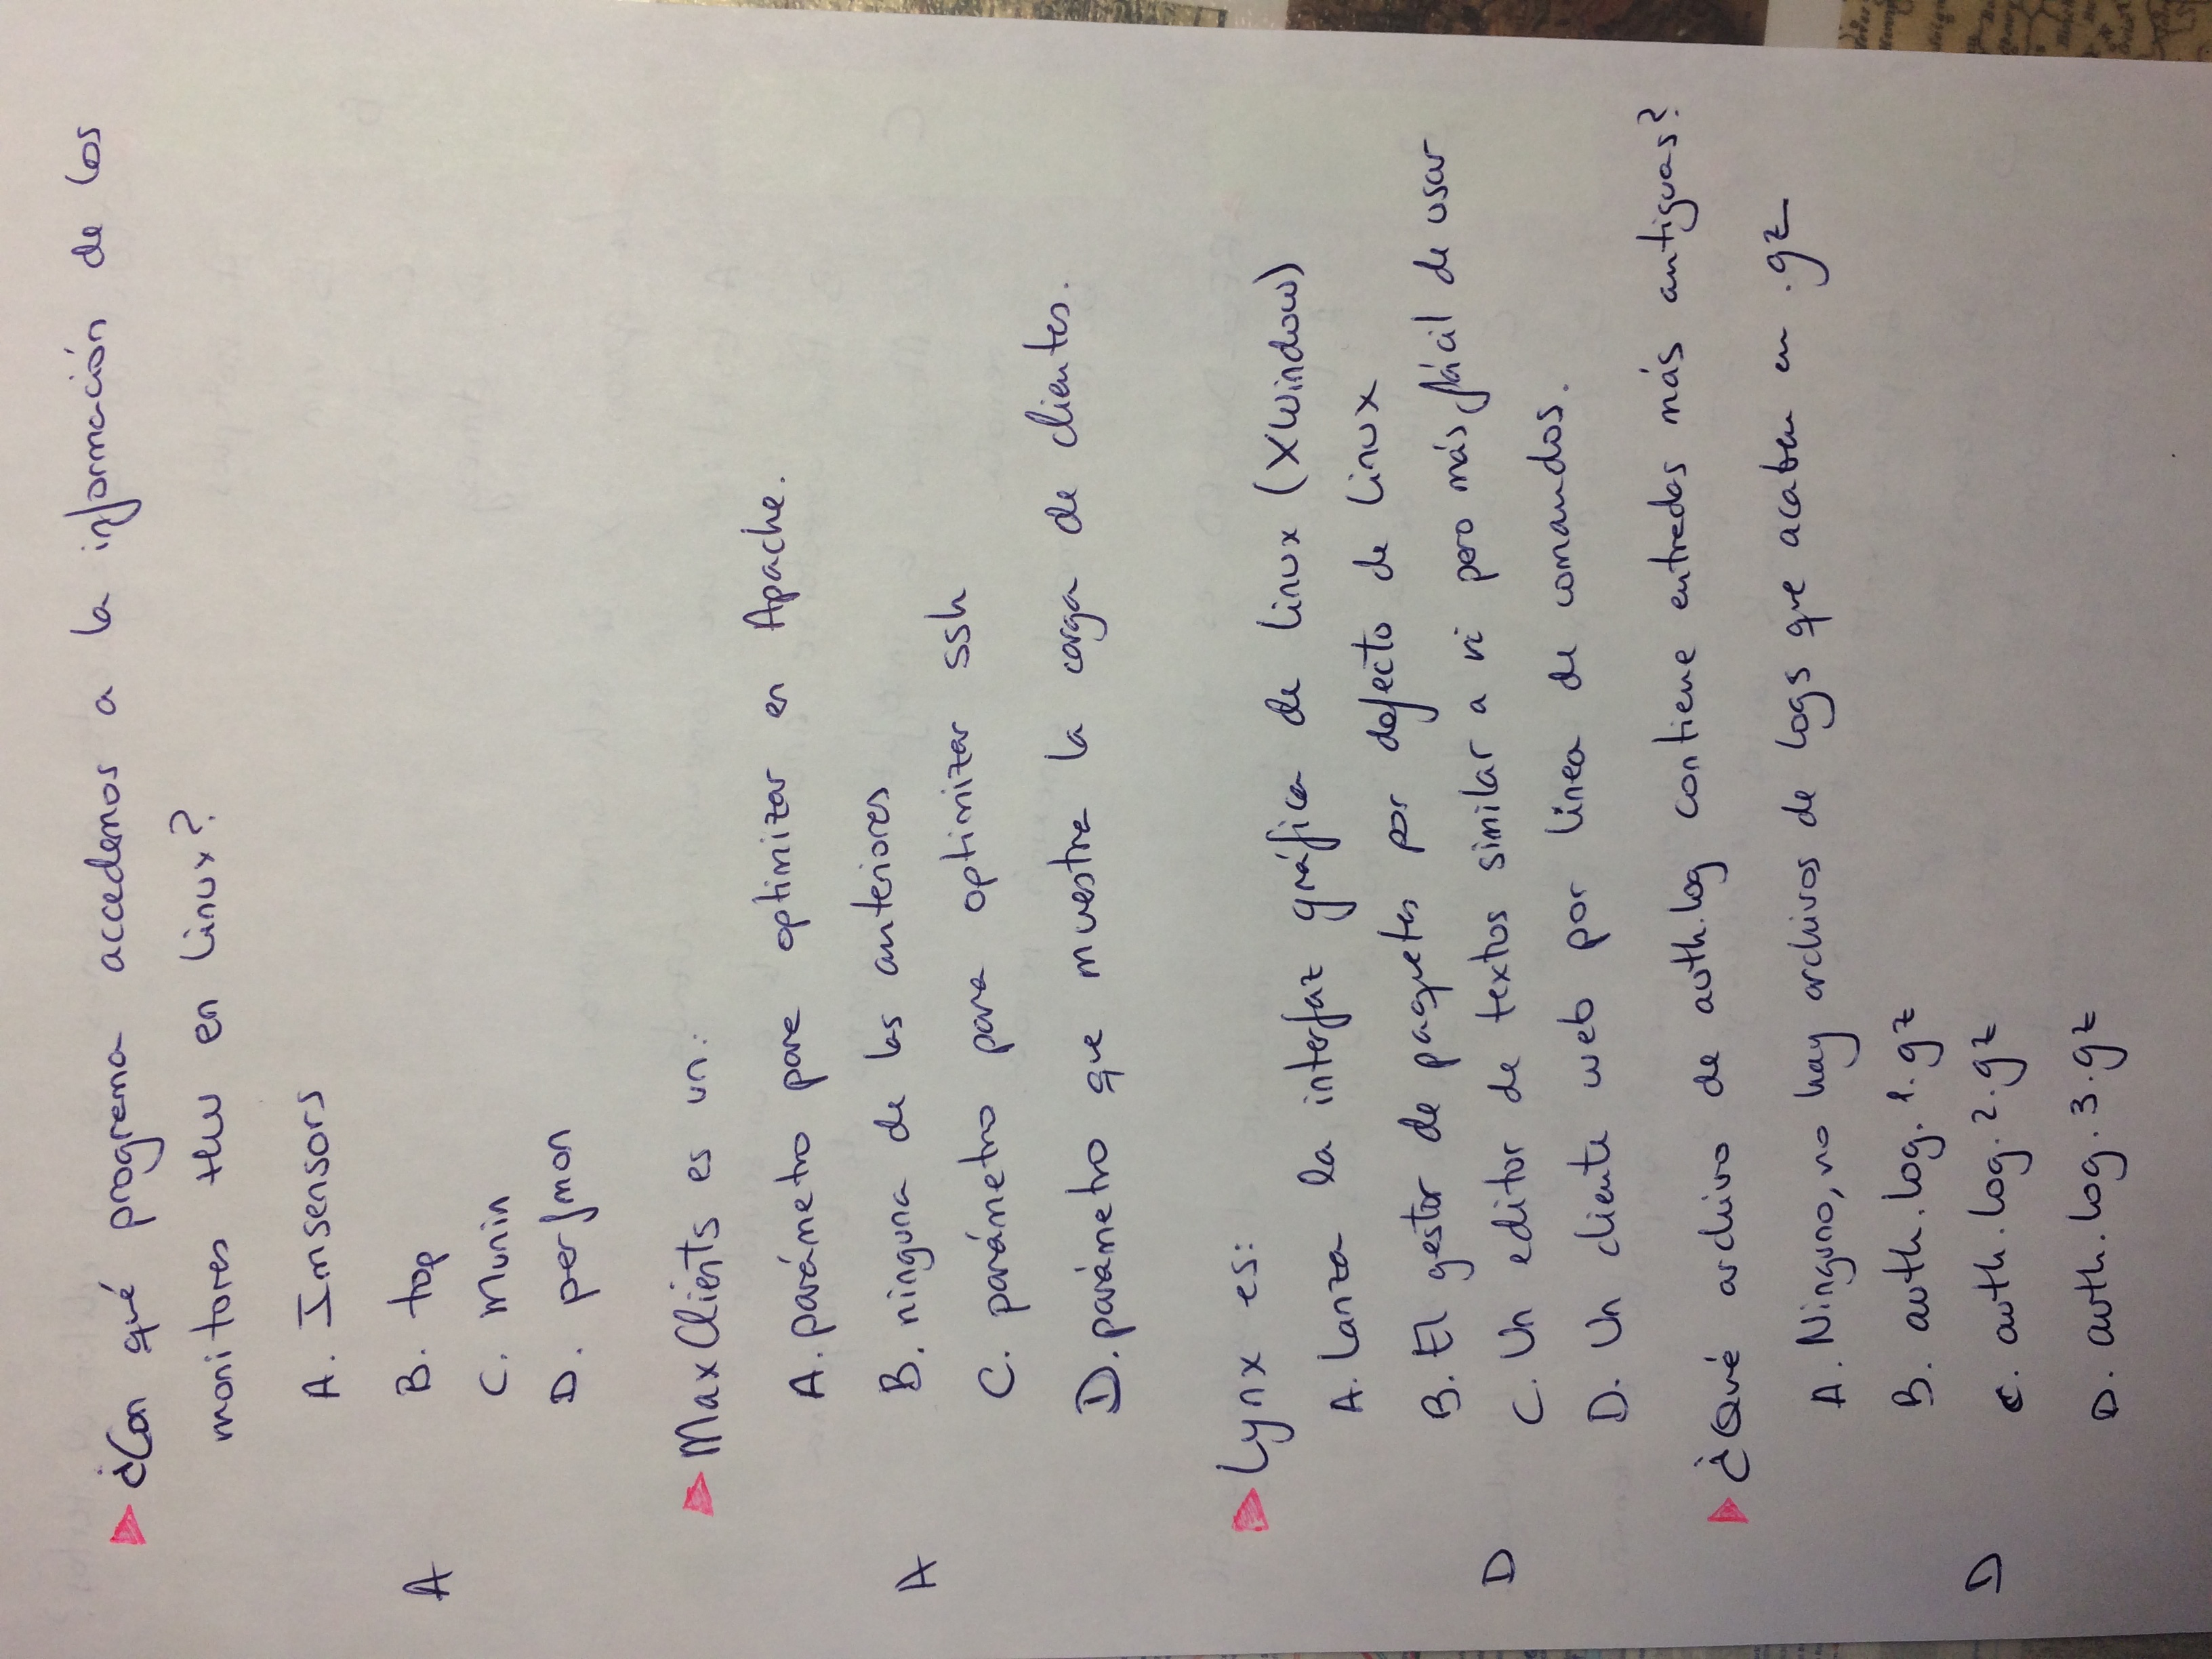 ¿Con qué programa accedemos a la información de los
monitores HW en Linux?
A. Imsensors
B. top
A
C. Munin
D. perfmon
MaxClients es un:
A. parámetro para optimizar en Apache.
B. ninguna de las anteriores
A
C. parámetro para optimizar ssh
D. parámetro que muestra la carga de clientes.
Lynx es:
A. Lanza la interfaz gráfica de linux (XWindow)
B. El gestor de paquetes por defecto de Linux
C. Un editor de textos similar a vi pero más fácil de usar
D
D. Un cliente web por línea de comandos.
¿Qué archivo de auth.log contiene entradas más antiguas?
A. Ninguno, no hay archivos de logs que acaben en .gz
B. auth.log.1.gz
D
C. auth.log.2.gz
D. auth.log.3.gz